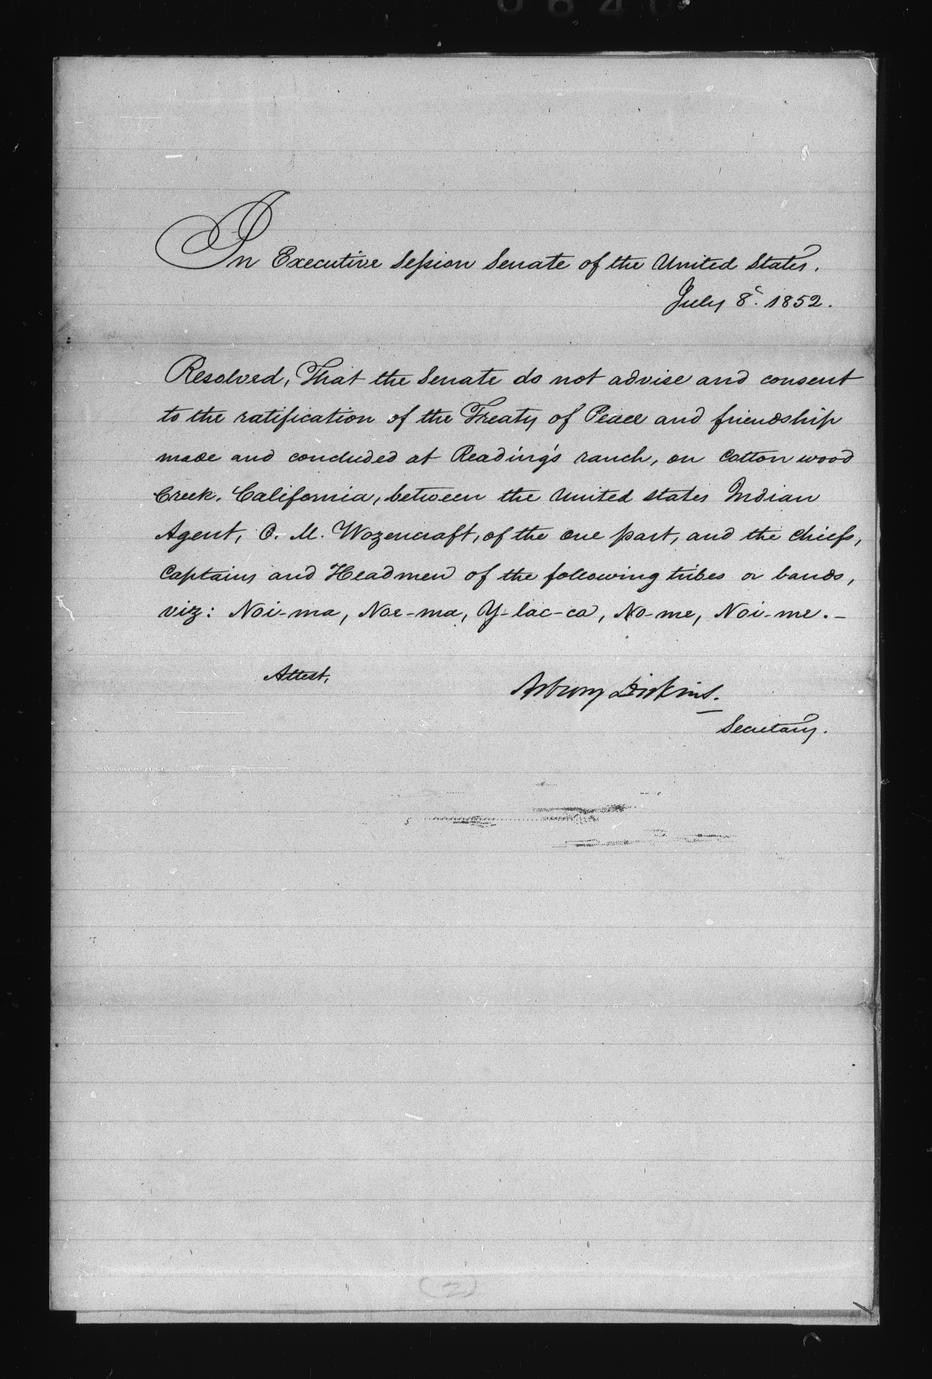 In Executive Session Senate of the United States.
July 8. 1852.
Resolved, That the Senate do not advise and consent
to the ratification of the Treaty of Peace and friendship
made and concluded at Reading's ranch, on Cotton wood
Creek, California, between the United States Indian
Agent, O. M. Wozencraft, of the one part, and the chiefs,
Captains and Headmen of the following tribes or bands,
viz: Noi-ma, Noe-ma, Y-lac-ca, No-me, Noi-me.—
Attest,
Asbury Dickins.
Secretary.
(2)